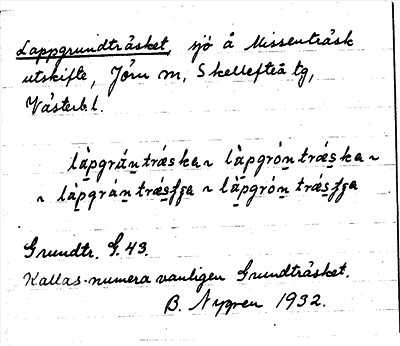 Lappgrundträsket, sjö å Missenträsk
utskifte, Jörn sn, Skellefteå tg,
Västerb. l.
làpgrúntrǽska ~ làpgróntrǽska ~
~ làpgrantrǽsʃʃa ~ làpgróntrǽsʃʃa
Grundtr. G. 43.
Kallas numera vanligen Grundträsket.
B. Nygren 1932.